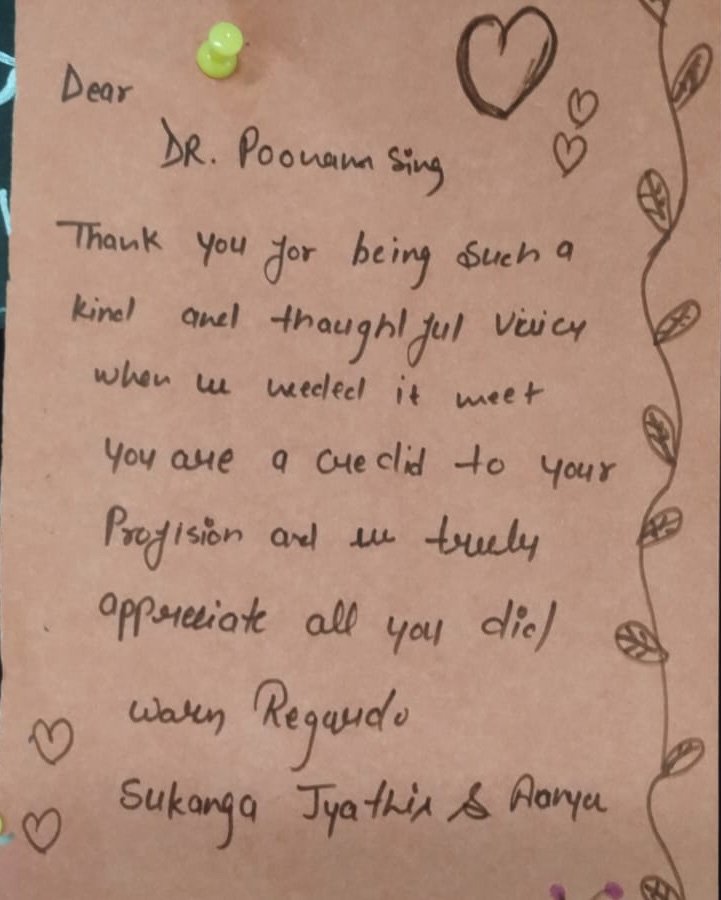 Dear
DR. Poonam Sing
Thank you for being such a
kind and thoughtful
when we needed it meet
you are a credid to your
Profision and we truly
appreciate all you did
warm Regards
Sukanga Jyathis & Aarya